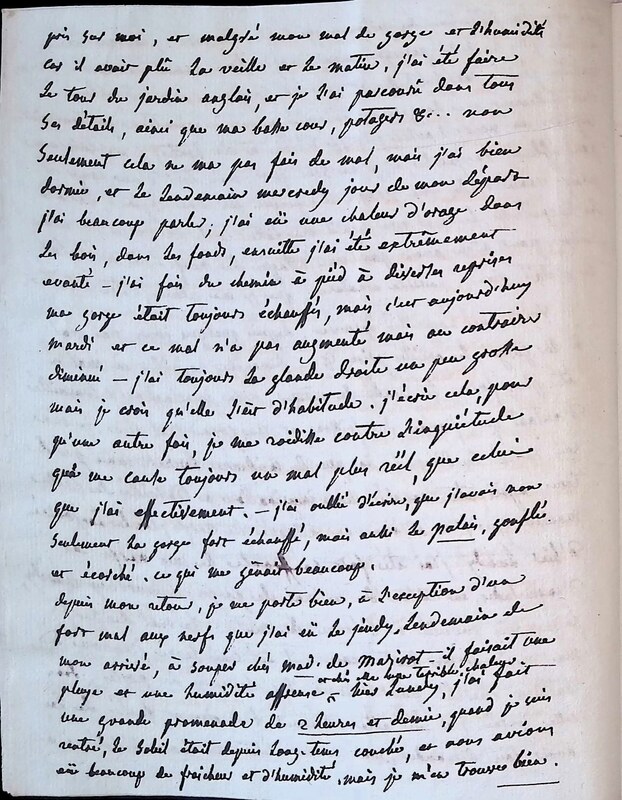 pris sur moi, et malgré mon mal de gorge et l'humidité
car il avait plû la veille et le matin, j'ai été faire
le tour du jardin anglais, et je l'ai parcourû dans tous
ses détails, ainsi que ma basse cour, potagers &... non
seulement cela ne m'a pas fais de mal, mais j'ai bien
dormie, et le lendemain mercredy jour de mon départ
j'ai beaucoup parlé; j'ai eü une chaleur d'orage dans
les bois, dans les fonds, ensuitte j'ai été extrêmement
eventé - j'ai fais du chemin à pied à diverses reprises
ma gorge était toujours échauffés, mais c'est aujourd'huy
mardi et ce mal n'a pas augmenté mais au contraire
diminué - j'ai toujours la glande droite un peu grosse
mais je crois qu'elle l'est d'habitude. j'écris cela, pour
qu'une autre fois, je me roidisse contre l'inquiétude
qui me cause toujours un mal plus réel, que celui
que j'ai effectivement. - j'ai oublié d'écrire, que j'avais non
seulement la gorge fort échauffé, mais aussi le palais, gonflé
et écorché. ce qui me gênait beaucoup.
depuis mon retour, je me porte bien, à l'exception d'un
fort mal aux nerfs que j'ai eü le jeudy, lendemain de
mon arrivé, à souper chés mad. de - il faisait une
pluye et une humidité affreuse - hier lundy, j'ai fait
et chés elle une terrible chaleur
une grande promenade de 2 heures et demie, quand je suis
rentré, le soleil était depuis long-tems couché, et nous avions
eü beaucoup de fraicheur et d'humidité, mais je m'en trouve bien.